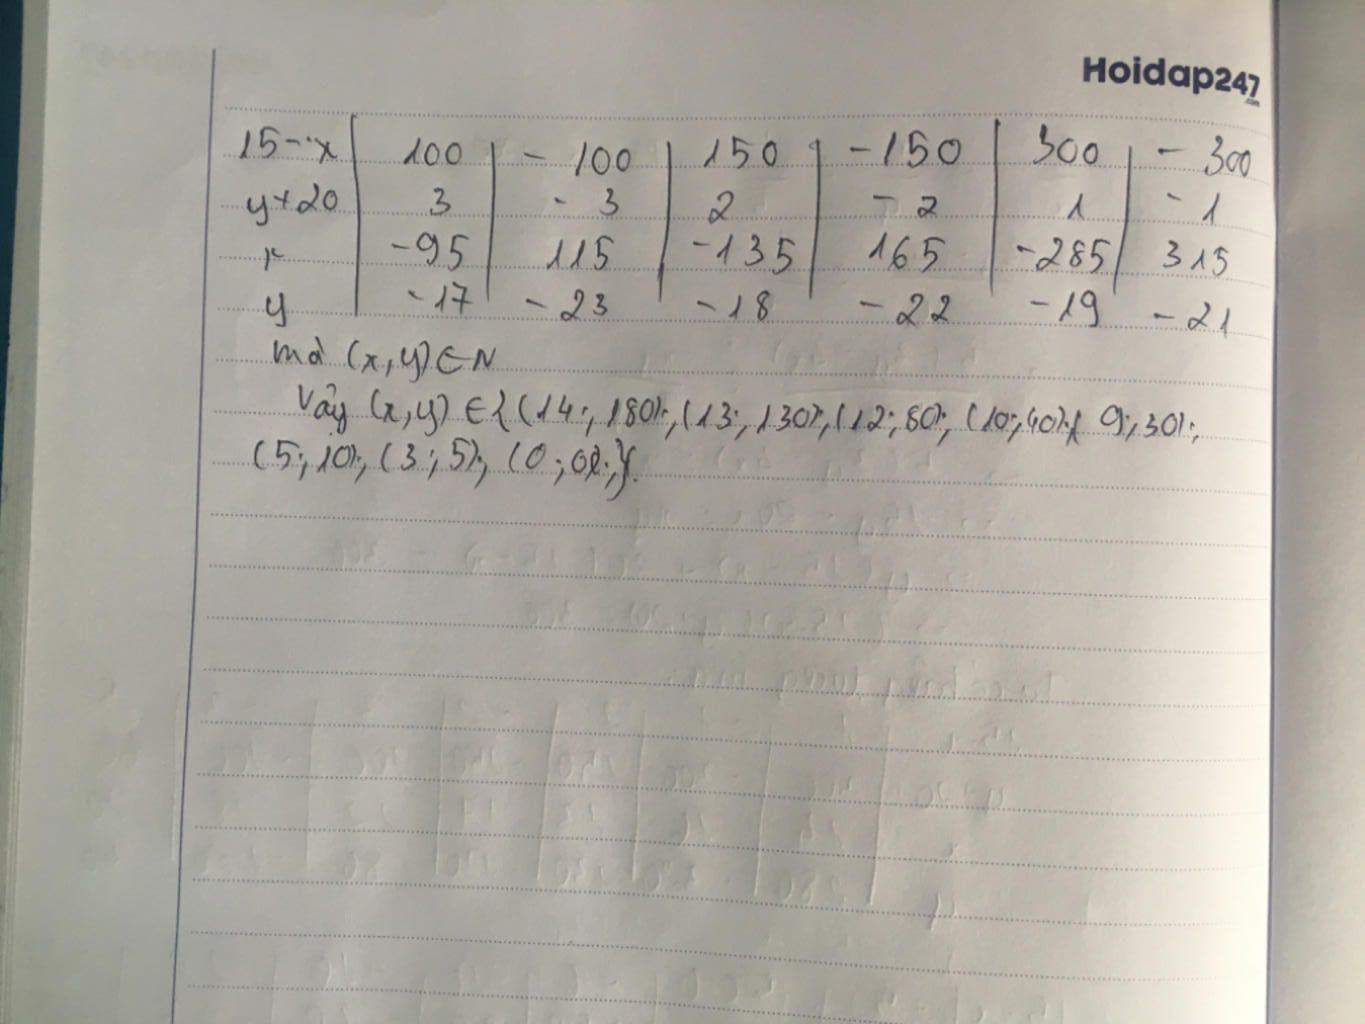 Hoidap247
.com
15-x 100 - 100 150 -150 300 - 300
y+20 3 - 3 2 - 2 1 - 1
x -95 115 -135 165 -285 315
y -17 - 23 - 18 - 22 - 19 - 21
mà (x,y) ∈ N
Vậy (x,y) ∈ { (14; 180); (13; 130); (12; 80); (10; 40); ( 9; 30);
(5; 10); (3; 5); (0; 0); }.